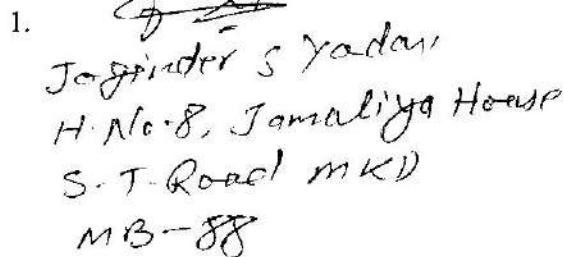 1.
Joginder S Yadav
H. No. 8, Jamaliya House
S. T. Road MKD
MB-88